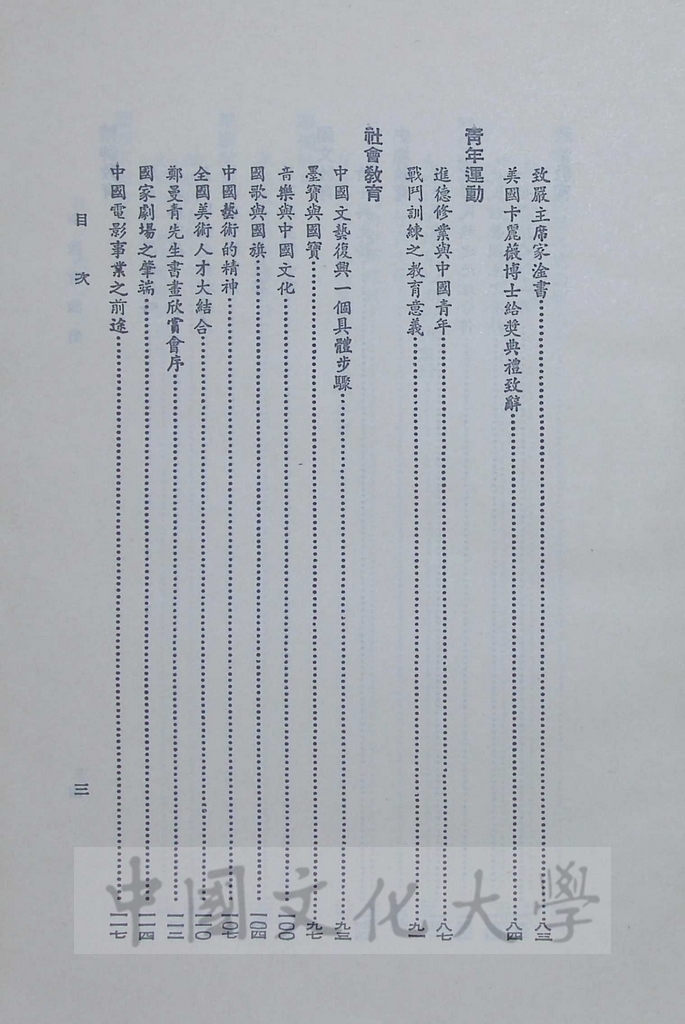 致嚴主席家淦書……八三
美國卡麗薇博士給獎典禮致辭……八四
青年運動
進德修業與中國青年……八七
戰鬥訓練之教育意義……九一
社會教育
中國文藝復興一個具體步驟……九三
墨寶與國寶……九七
音樂與中國文化……一〇〇
國歌與國旗……一〇四
中國藝術的精神……一〇七
全國美術人才大結合……一一〇
鄭曼青先生書畫欣賞會序……一一二
國家劇場之肇端……一一四
中國電影事業之前途……一一七
目次
三
中國文化大學